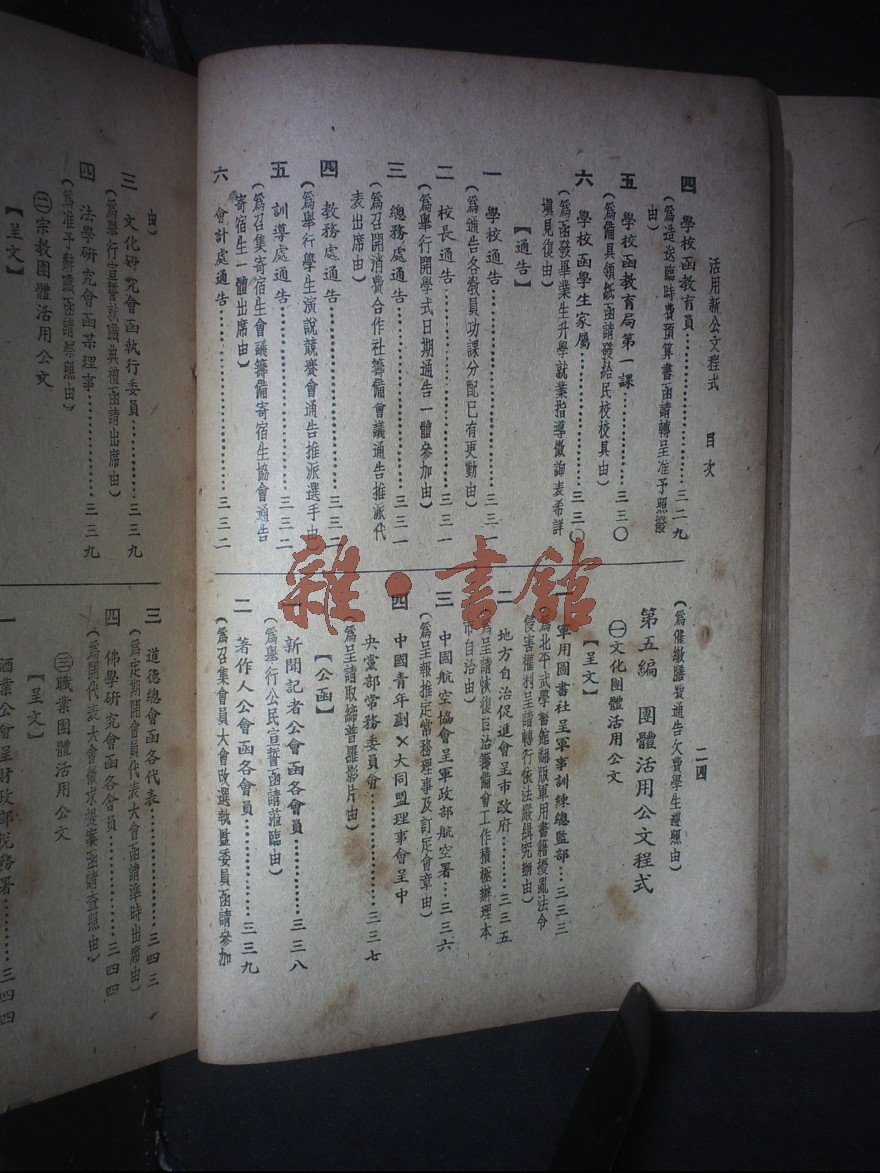 活用新公文程式　目次
二四
四　學校函教育局
（爲造送臨時費預算書函請轉呈准予照撥
由）…………三二九
五　學校函教育局第一課…………三三〇
（爲備具領紙函請發給民校校具由）
六　學校函學生家屬…………三三〇
（爲函發畢業生升學就業指導徵詢表希詳
塡見復由）
【通告】
一　學校通告…………三三一
（爲通告各敎員功課分配已有更動由）
二　校長通告…………三三一
（爲舉行開學式日期通告一體參加由）
三　總務處通告…………三三一
（爲召開消費合作社籌備會議通告推派代
表出席由）
四　敎務處通告…………三三二
（爲舉行學生演說競賽會通告推派選手由）
五　訓導處通告…………三三二
（爲召集寄宿生會議籌備寄宿生協會通告
寄宿生一體出席由）
六　會計處通告…………三三二
（爲催繳膳費通告欠費學生遵照由）
第五編　團體活用公文程式
㊀文化團體活用公文
【呈文】
一　軍用圖書社呈軍事訓練總監部…三三三
（爲北平武學書館翻版軍用書籍擾亂法令
侵害權利呈請轉行依法嚴緝究辦由）
二　地方自治促進會呈市政府…三三五
（爲呈請恢復自治籌備會工作積極辦理本
市自治由）
三　中國航空協會呈軍政部航空署…三三六
（爲呈報推定常務理事及訂定會章由）
四　中國靑年剷×大同盟理事會呈中
央黨部常務委員會…………三三七
（爲呈請取締普羅影片由）
【公函】
一　新聞記者公會函各會員…………三三八
（爲舉行公民宣誓函請蒞臨由）
二　著作人公會函各會員…………三三九
（爲召集會員大會改選執監委員函請參加
由）
三　文化硏究會函執行委員…………三三九
（爲舉行宣誓就職典禮函請出席由）
四　法學硏究會函某理事…………三三九
（爲准予辭職函請察照由）
㊁宗敎團體活用公文
【呈文】
三　道德總會函各代表…………三四三
（爲定期開會員代表大會函請準時出席由）
四　佛學硏究會函各會員…………三四四
（爲開代表大會徵求提案函請查照由）
㊂職業團體活用公文
【呈文】
一　酒業公會呈財政部稅務署…………三四四
雜·書館